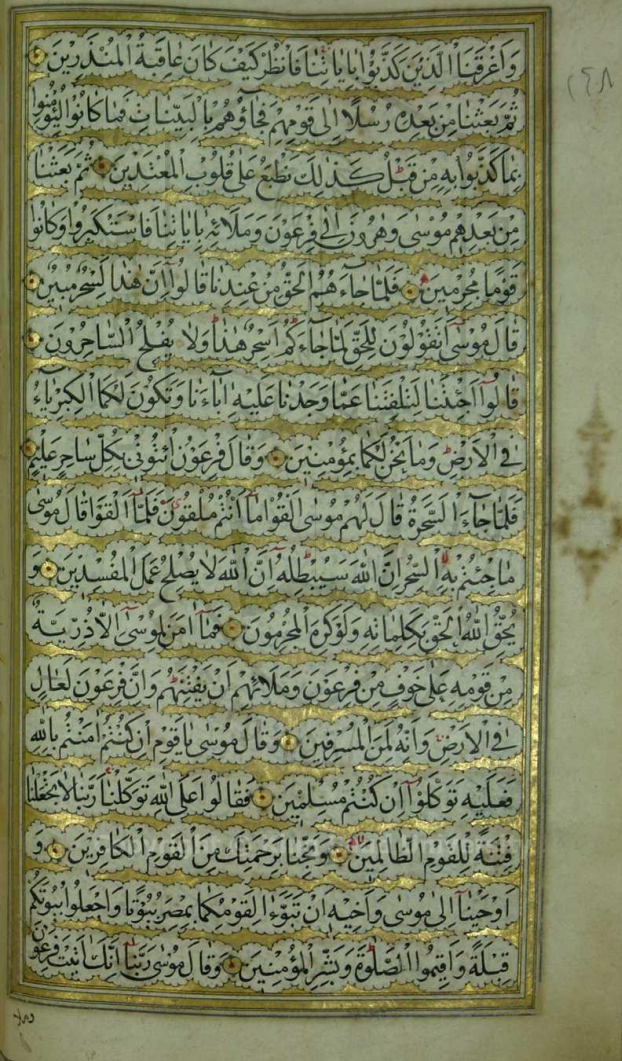 وَاَغْرَقْنَا الَّذينَ كَذَّبُوا بِاٰيَاتِنَا فَانْظُرْ كَيْفَ كَانَ عَاقِبَةُ الْمُنْذَرينَ
١٤٨
ثُمَّ بَعَثْنَا مِنْ بَعْدِهِ رُسُلًا اِلٰى قَوْمِهِمْ فَجَآؤُهُمْ بِالْبَيِّنَاتِ فَمَا كَانُوا لِيُؤْمِنُوا
بِمَا كَذَّبُوا بِهِ مِنْ قَبْلُ كَذٰلِكَ نَطْبَعُ عَلٰى قُلُوبِ الْمُعْتَدينَ ثُمَّ بَعَثْنَا
مِنْ بَعْدِهِمْ مُوسٰى وَهٰرُونَ اِلٰى فِرْعَوْنَ وَمَلَائِهِ بِاٰيَاتِنَا فَاسْتَكْبَرُوا وَكَانُوا
قَوْمًا مُجْرِمينَ فَلَمَّا جَآءَ هُمُ الْحَقُّ مِنْ عِنْدِنَا قَالُوا اِنَّ هٰذَا لَسِحْرٌ مُبينٌ
قَالَ مُوسٰى اَتَقُولُونَ لِلْحَقِّ لَمَّا جَآءَكُمْ اَسِحْرٌ هٰذَا وَلَا يُفْلِحُ السَّاحِرُونَ
قَالُوا اَجِئْتَنَا لِتَلْفِتَنَا عَمَّا وَجَدْنَا عَلَيْهِ اٰبَآءَنَا وَتَكُونَ لَكُمَا الْكِبْرِيَآءُ
فِي الْاَرْضِ وَمَا نَحْنُ لَكُمَا بِمُؤْمِنينَ وَقَالَ فِرْعَوْنُ ائْتُونى بِكُلِّ سَاحِرٍ عَليمٍ
فَلَمَّا جَآءَ السَّحَرَةُ قَالَ لَهُمْ مُوسٰى اَلْقُوا مَا اَنْتُمْ مُلْقُونَ فَلَمَّا اَلْقَوْا قَالَ مُوسٰى
مَا جِئْتُمْ بِهِ السِّحْرُ اِنَّ اللّٰهَ سَيُبْطِلُهُ اِنَّ اللّٰهَ لَا يُصْلِحُ عَمَلَ الْمُفْسِدينَ وَ
يُحِقُّ اللّٰهُ الْحَقَّ بِكَلِمَاتِهِ وَلَوْ كَرِهَ الْمُجْرِمُونَ فَمَا اٰمَنَ لِمُوسٰى اِلَّا ذُرِّيَّةٌ
مِنْ قَوْمِهِ عَلٰى خَوْفٍ مِنْ فِرْعَوْنَ وَمَلَائِهِمْ اَنْ يَفْتِنَهُمْ وَاِنَّ فِرْعَوْنَ لَعَالٍ
فِي الْاَرْضِ وَاِنَّهُ لَمِنَ الْمُسْرِفينَ وَقَالَ مُوسٰى يَا قَوْمِ اِنْ كُنْتُمْ اٰمَنْتُمْ بِاللّٰهِ
فَعَلَيْهِ تَوَكَّلُوا اِنْ كُنْتُمْ مُسْلِمينَ فَقَالُوا عَلَى اللّٰهِ تَوَكَّلْنَا رَبَّنَا لَا تَجْعَلْنَا
فِتْنَةً لِلْقَوْمِ الظَّالِمينَ وَنَجِّنَا بِرَحْمَتِكَ مِنَ الْقَوْمِ الْكَافِرينَ وَ
اَوْحَيْنَا اِلٰى مُوسٰى وَاَخيهِ اَنْ تَبَوَّءَا لِقَوْمِكُمَا بِمِصْرَ بُيُوتًا وَاجْعَلُوا بُيُوتَكُمْ
قِبْلَةً وَاَقيمُوا الصَّلٰوةَ وَبَشِّرِ الْمُؤْمِنينَ وَقَالَ مُوسٰى رَبَّنَا اِنَّكَ اٰتَيْتَ فِرْعَوْنَ